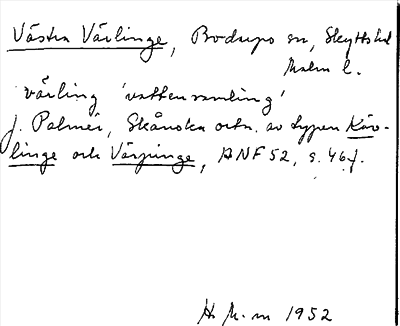 Västra Värlinge, Bodarps sn, Skytts hd
Malm l.
värling 'vattensamling'
J. Palmér, Skånska ortn. av typen Käv-
linge och Värpinge, ANF 52, s. 46 f.
1952